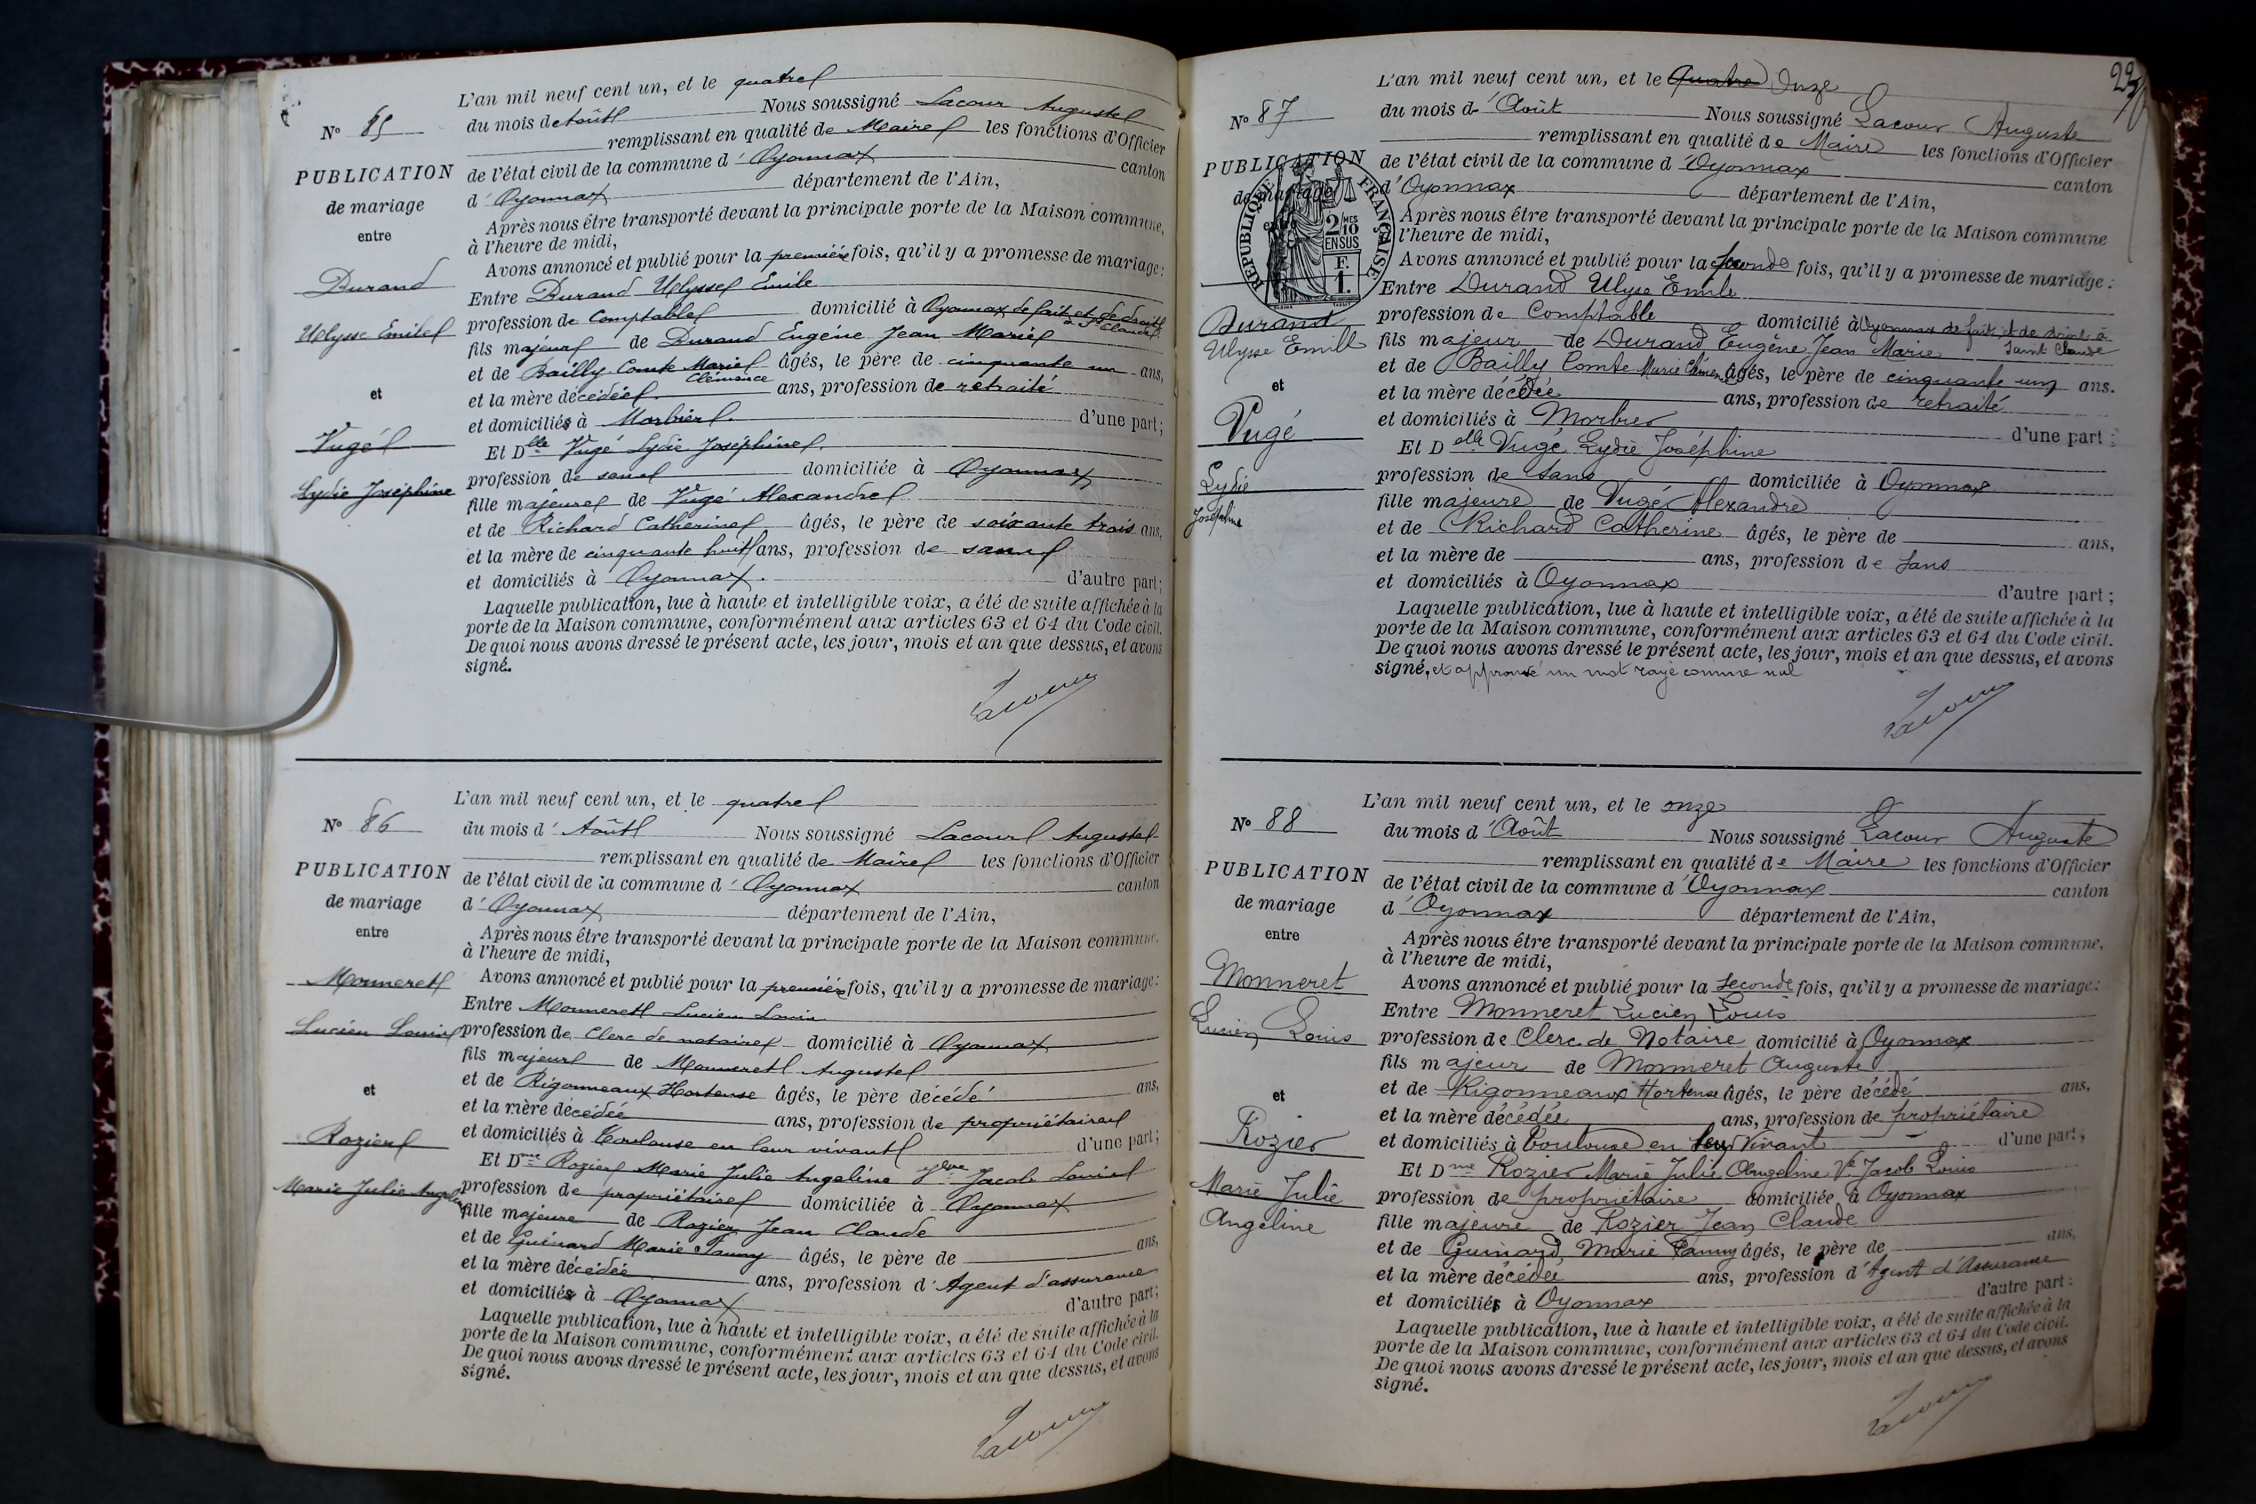 N° 85
PUBLICATION
de mariage
entre
Durand
Ulysse Emile
et
Vugé
Lydie Joséphine
L'an mil neuf cent un, et le quatre
du mois de Août Nous soussigné Lacour Auguste
remplissant en qualité de Maire les fonctions d'Officier
de l'état civil de la commune d'Oyonnax canton
d'Oyonnax département de l'Ain,
Après nous être transporté devant la principale porte de la Maison commune,
à l'heure de midi,
Avons annoncé et publié pour la première fois, qu'il y a promesse de mariage:
Entre Durand Ulysse Emile
profession de Comptable domicilié à Oyonnax de fait et de droit
à St Claude
fils majeur de Durand Eugène Jean Marie
et de Bailly Comte Marie âgés, le père de cinquante un ans,
Clémence
et la mère décédée ans, profession de retraité
et domiciliés à Morbier d'une part;
Et Dlle Vugé Lydie Joséphine
profession de sans domiciliée à Oyonnax
fille majeure de Vugé Alexandre
et de Richard Catherine âgés, le père de soixante trois ans,
et la mère de cinquante huit ans, profession de sans
et domiciliés à Oyonnax. d'autre part;
Laquelle publication, lue à haute et intelligible voix, a été de suite affichée à la
porte de la Maison commune, conformément aux articles 63 et 64 du Code civil.
De quoi nous avons dressé le présent acte, les jour, mois et an que dessus, et avons
signé.
Lacour
N° 86
PUBLICATION
de mariage
entre
Monneret
Lucien Louis
et
Rozier
Marie Julie Angeline
L'an mil neuf cent un, et le quatre
du mois d'Août Nous soussigné Lacour Auguste
remplissant en qualité de Maire les fonctions d'Officier
de l'état civil de la commune d'Oyonnax canton
d'Oyonnax département de l'Ain,
Après nous être transporté devant la principale porte de la Maison commune,
à l'heure de midi,
Avons annoncé et publié pour la première fois, qu'il y a promesse de mariage:
Entre Monneret Lucien Louis
profession de Clerc de notaire domicilié à Oyonnax
fils majeur de Monneret Auguste
et de Rigonneaux Hortense âgés, le père décédé ans,
et la mère décédée ans, profession de propriétaire
et domiciliés à Toulouse en leur vivant d'une part;
Et Dme Rozier Marie Julie Angeline Vve Jacob Louis
profession de propriétaire domiciliée à Oyonnax
fille majeure de Rozier Jean Claude
et de Guinard Marie Fanny âgés, le père de ans,
et la mère décédée ans, profession d'Agent d'assurance
et domiciliés à Oyonnax d'autre part;
Laquelle publication, lue à haute et intelligible voix, a été de suite affichée à la
porte de la Maison commune, conformément aux articles 63 et 64 du Code civil.
De quoi nous avons dressé le présent acte, les jour, mois et an que dessus, et avons
signé.
Lacour
N° 87
PUBLICATION
de mariage
entre
RÉPUBLIQUE FRANÇAISE
2/10
MES
EN SUS
F.
1.
Durand
Ulysse Emile
et
Vugé
Lydie
Joséphine
L'an mil neuf cent un, et le Quatre Onze
du mois d'Août Nous soussigné Lacour Auguste
remplissant en qualité de Maire les fonctions d'Officier
de l'état civil de la commune d'Oyonnax canton
d'Oyonnax département de l'Ain,
Après nous être transporté devant la principale porte de la Maison commune
l'heure de midi,
Avons annoncé et publié pour la seconde fois, qu'il y a promesse de mariage:
Entre Durand Ulysse Emile
profession de Comptable domicilié à Oyonnax de fait, et de droit à
Saint Claude
fils majeur de Durand Eugène Jean Marie
et de Bailly Comte Marie Clémence âgés, le père de cinquante un ans.
et la mère décédée ans, profession de retraité
et domiciliés à Morbier d'une part;
Et Delle Vugé Lydie Joséphine
profession de sans domiciliée à Oyonnax
fille majeure de Vugé Alexandre
et de Richard Catherine âgés, le père de ans,
et la mère de ans, profession de sans
et domiciliés à Oyonnax d'autre part;
Laquelle publication, lue à haute et intelligible voix, a été de suite affichée à la
porte de la Maison commune, conformément aux articles 63 et 64 du Code civil.
De quoi nous avons dressé le présent acte, les jour, mois et an que dessus, et avons
signé, et approuvé un mot rayé comme nul
Lacour
N° 88
PUBLICATION
de mariage
entre
Monneret
Lucien Louis
et
Rozier
Marie Julie
Angeline
L'an mil neuf cent un, et le onze
du mois d'Août Nous soussigné Lacour Auguste
remplissant en qualité de Maire les fonctions d'Officier
de l'état civil de la commune d'Oyonnax canton
d'Oyonnax département de l'Ain,
Après nous être transporté devant la principale porte de la Maison commune,
à l'heure de midi,
Avons annoncé et publié pour la seconde fois, qu'il y a promesse de mariage:
Entre Monneret Lucien Louis
profession de Clerc de Notaire domicilié à Oyonnax
fils majeur de Monneret Auguste
et de Rigonneaux Hortense âgés, le père décédé ans,
et la mère décédée ans, profession de propriétaire
et domiciliés à Toulouse en leur vivant d'une part;
Et Dme Rozier Marie Julie Angeline Ve Jacob Louis
profession de propriétaire domiciliée à Oyonnax
fille majeure de Rozier Jean Claude
et de Guinard Marie Fanny âgés, le père de ans,
et la mère décédée ans, profession d'Agent d'Assurance
et domiciliés à Oyonnax d'autre part;
Laquelle publication, lue à haute et intelligible voix, a été de suite affichée à la
porte de la Maison commune, conformément aux articles 63 et 64 du Code civil.
De quoi nous avons dressé le présent acte, les jour, mois et an que dessus, et avons
signé.
Lacour